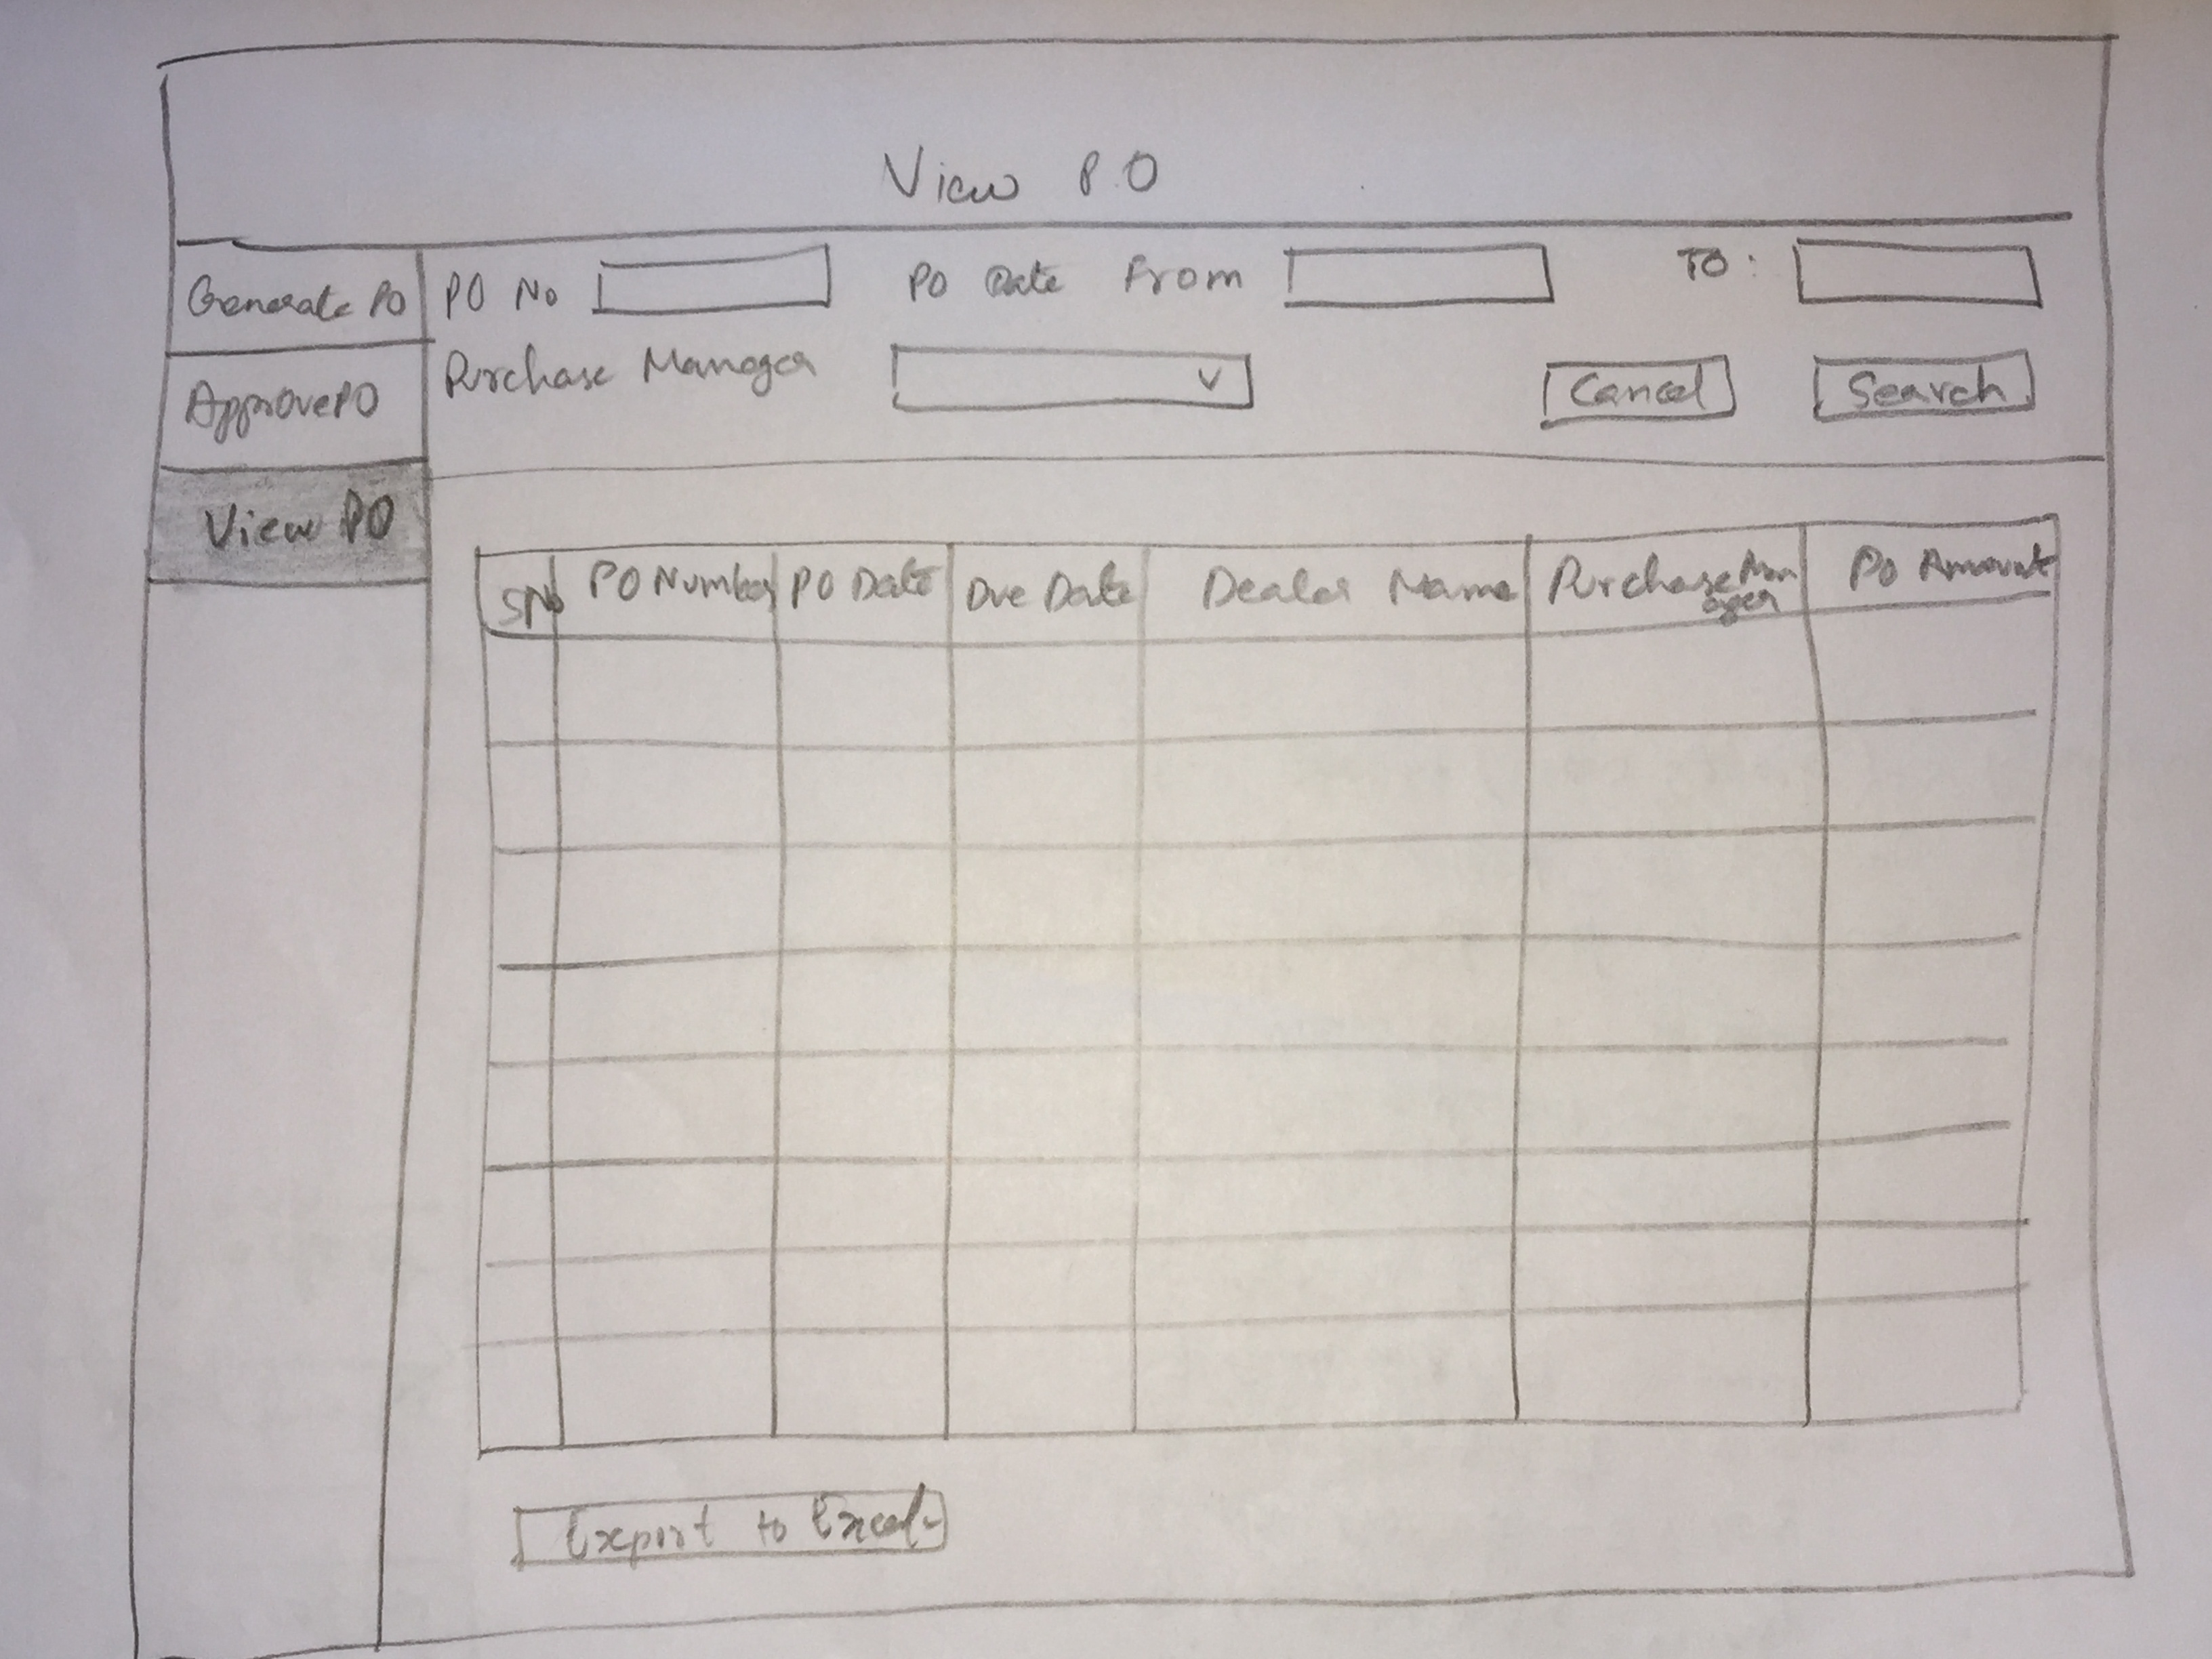 View P.O
Generate PO
PO No
PO Date From
TO:
Approve PO
Purchase Manager
Cancel
Search
View PO
SNo
PO Number
PO Date
Due Date
Dealer Name
Purchase Man
ager
PO Amount
Export to Excel